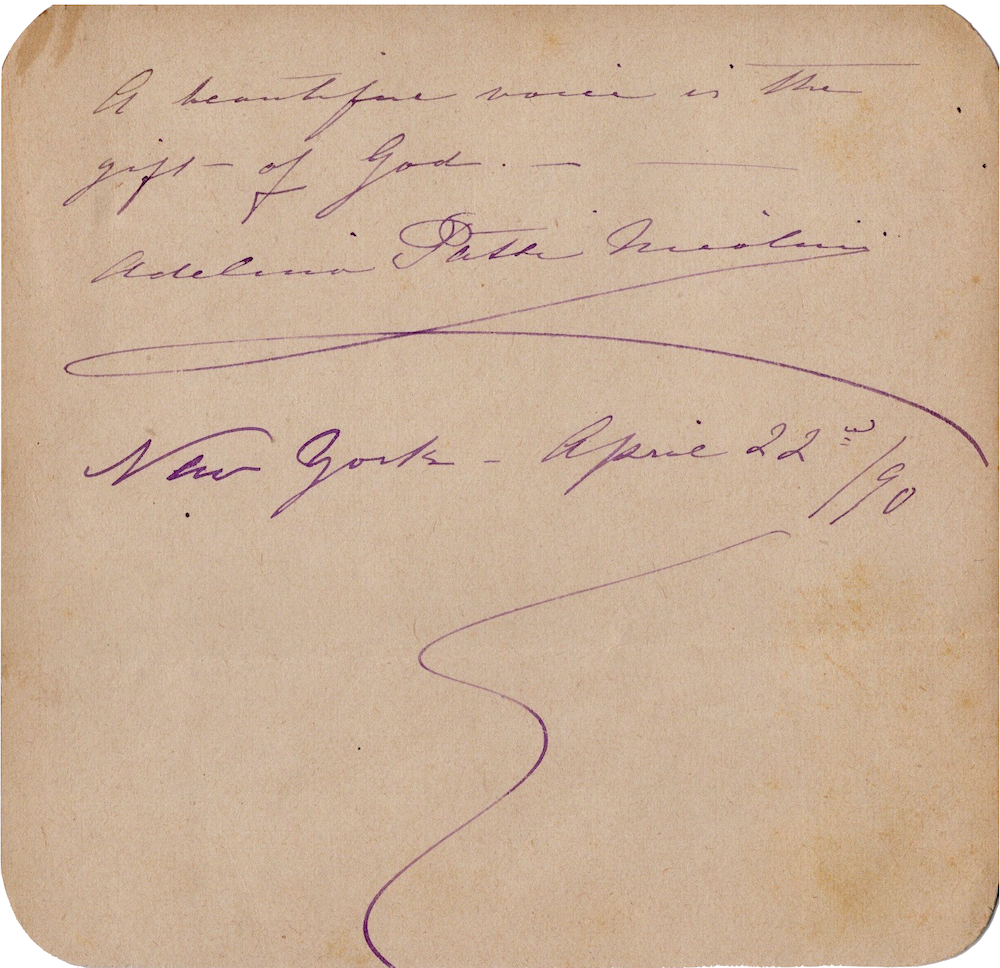 A beautiful voice is the
gift of God. —
Adelina Patti Nicolini
New York - April 22nd/90